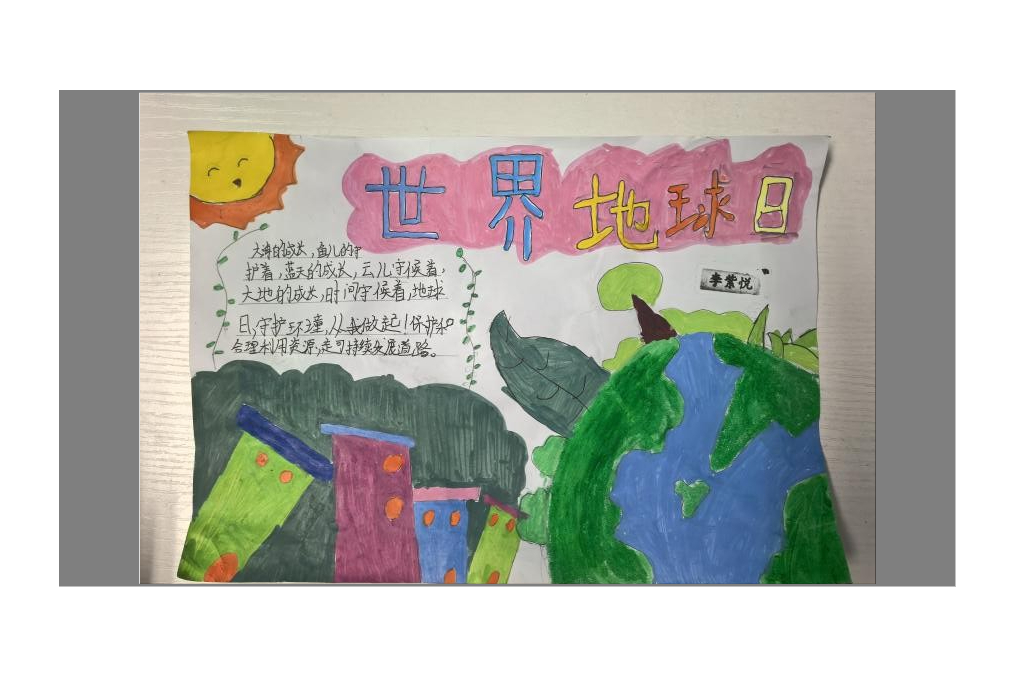 世界地球日
李紫悦
大海的成长，鱼儿的守
护着，蓝天的成长，云儿守候着，
大地的成长，时间守候着，地球
日，守护环境，从我做起！保护和
合理利用资源，走可持续发展道路。